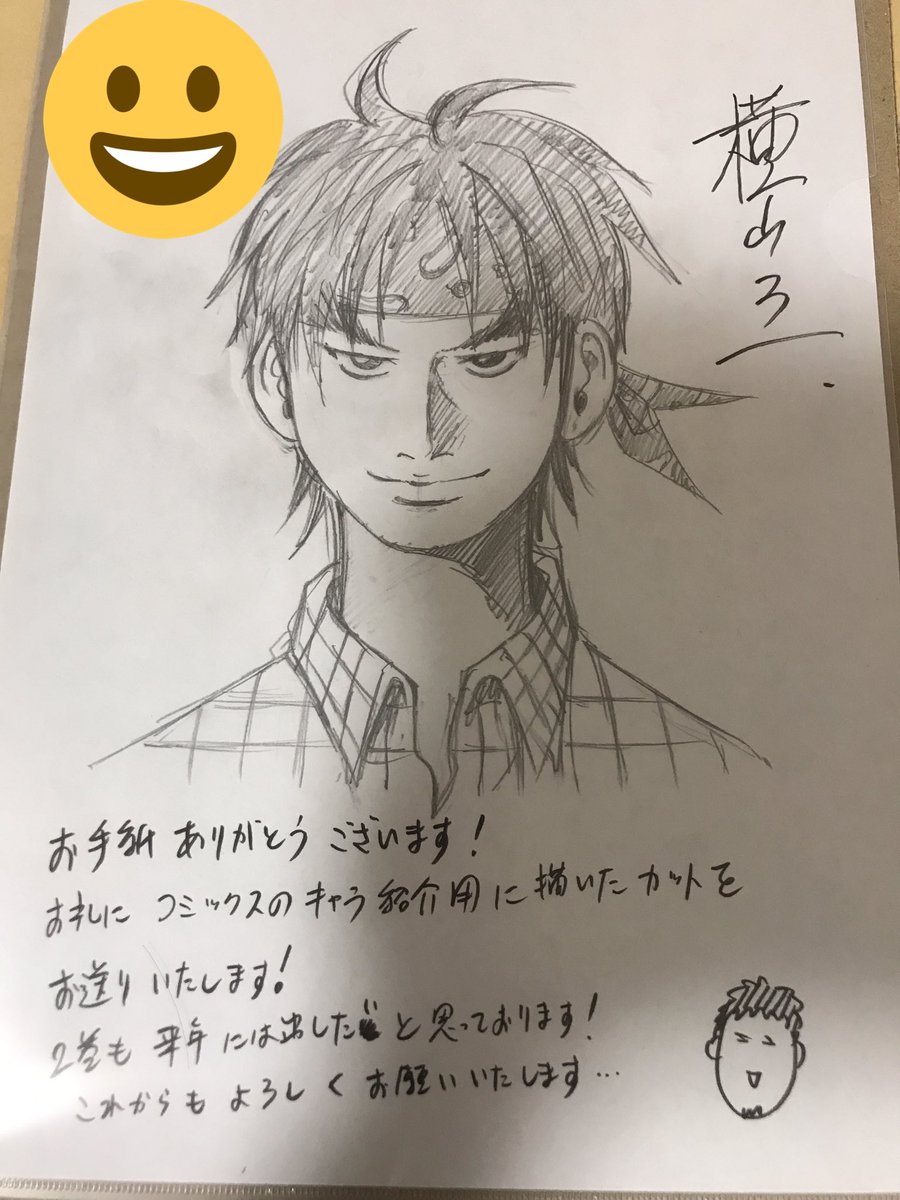 横山了一
お手紙ありがとうございます!
お礼に コミックスのキャラ紹介用に描いたカットを
お送りいたします!
2巻も 来年には出したいと思っております!
これからも よろしくお願いいたします…